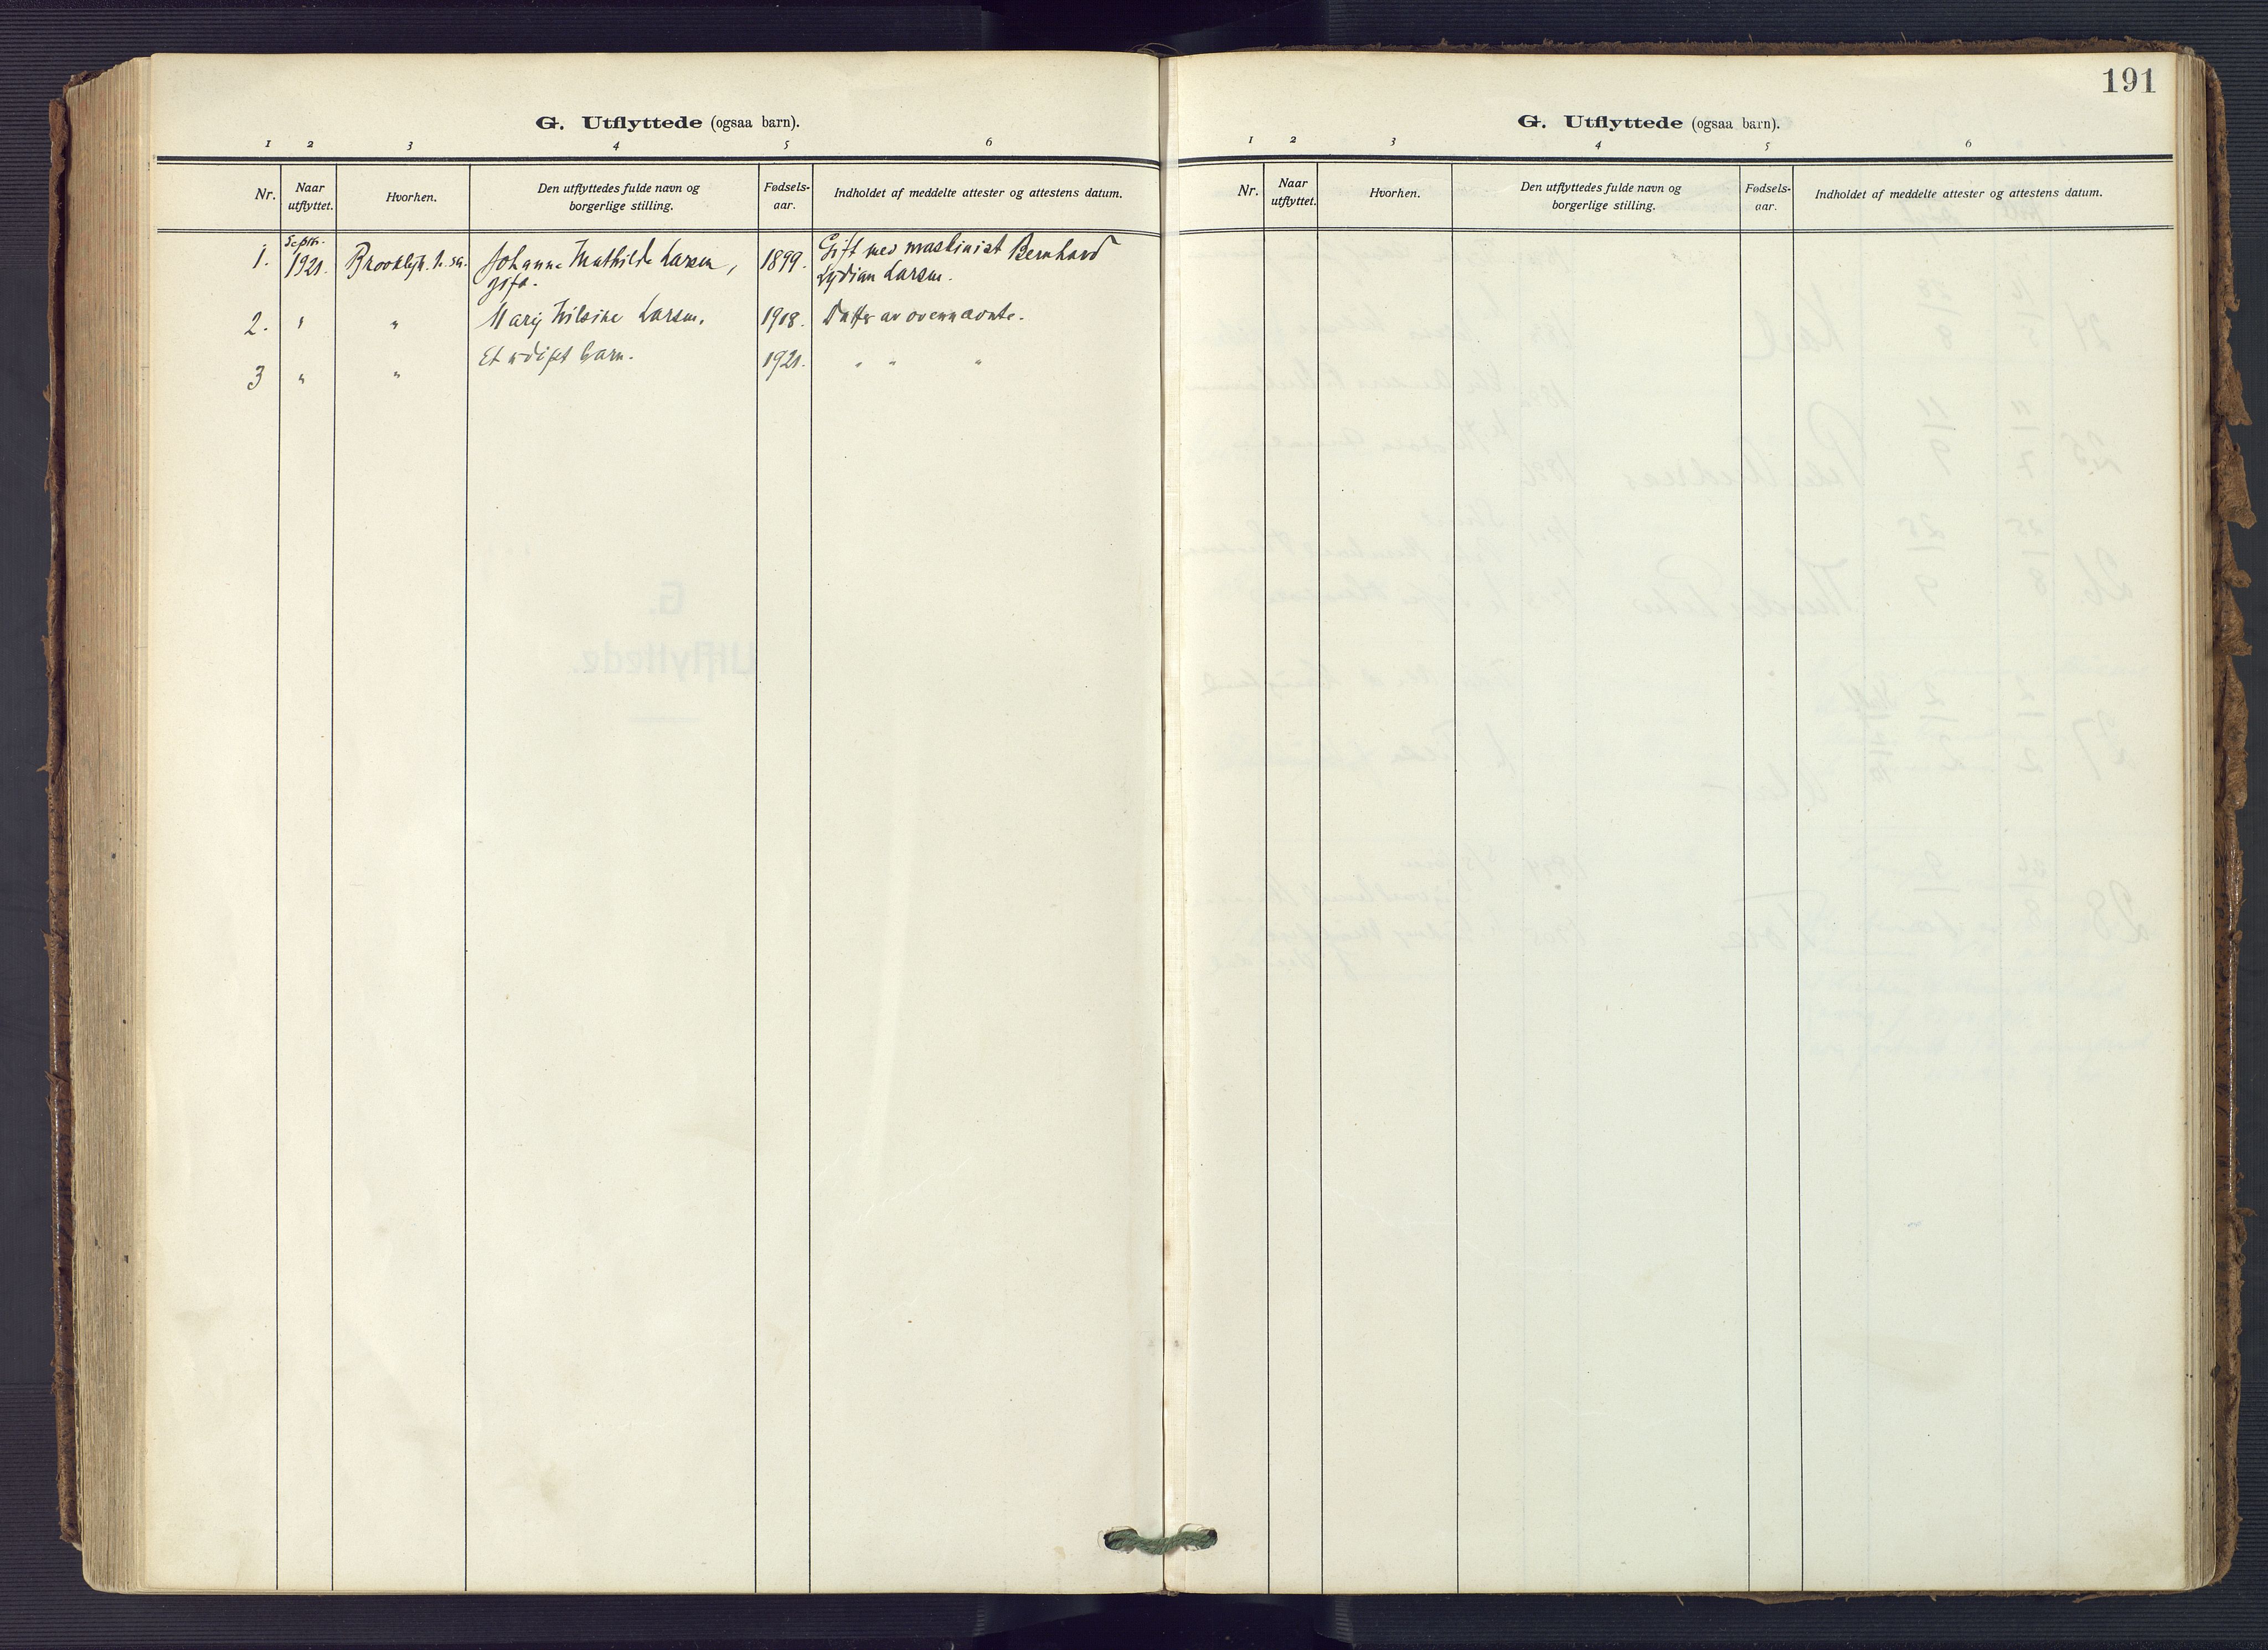 G. Utflyttede (ogsaa barn).
1 2 3 4 5 6
Nr. Naar utflyttet. Hvorhen. Den utflyttedes fulde navn og borgerlige stilling. Fødsels-aar. Indholdet af meddelte attester og attestens datum.
1. Septbr. 1921. Brooklyn. Johanne Mathilde Larsen, 1899. Gift med maskinist Bernhard
gift. Lydian Larsen.
2. " " Mary Larsen. 1918. Datter av ovennævnte.
3 " " Et udøpt barn. 1921. " " "
191
G. Utflyttede (ogsaa barn).
1 2 3 4 5 6
Nr. Naar utflyttet. Hvorhen. Den utflyttedes fulde navn og borgerlige stilling. Fødsels-aar. Indholdet af meddelte attester og attestens datum.